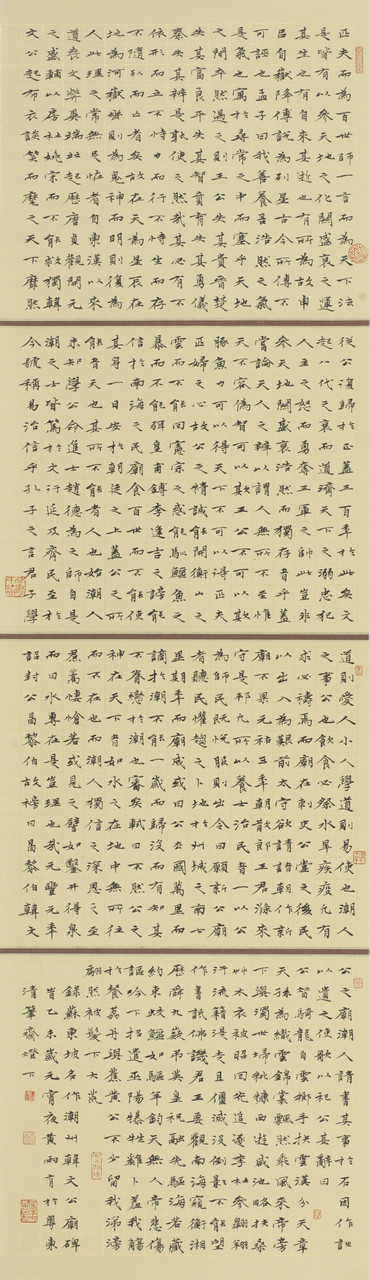 匹夫而為百世師一言而為天下法
是皆有以參天地之化關盛衰之運
其生也有自來其逝也有所為故申
呂自嶽降傅說為列星古今所傳不
可誣也孟子曰我善養吾浩然之氣
是氣也寓於尋常之中而塞乎天地
之間卒然遇之則王公失其貴晉楚
失其富良平失其智賁育失其勇儀
秦失其辨是孰使之然哉其必有不
依形而立不恃力而行不待生而存
不隨死而亡者矣故在天為星辰在
地為河嶽幽則為鬼神而明則復為
人此理之常無足怪者自東漢以來
道喪文弊異端並起歷唐貞觀開元
之盛輔以房杜姚宋而不能救獨韓
文公起布衣談笑而麾之天下靡然
從公復歸於正蓋三百年於此矣文
起八代之衰而道濟天下之溺忠犯
人主之怒而勇奪三軍之帥此豈非
參天地關盛衰浩然而獨存者乎蓋
嘗論天人之辨以謂人無所不至惟
天不容偽智可以欺王公不可以欺
豚魚力可以得天下不可以得匹夫
匹婦之心故公之精誠能開衡山之
雲而不能回憲宗之惑能馴鱷魚之
暴而不能弭皇甫鎛李逢吉之謗能
信於南海之民廟食百世而不能使
其身一日安於朝廷之上蓋公之所
能者天也其所不能者人也始潮人
未知學公命進士趙德為之師自是
潮之士皆篤於文行延及齊民至於
今號稱易治信乎孔子之言君子學
道則愛人小人學道則易使也潮人
之事公也飲食必祭水旱疾疫凡有
求必禱焉而廟在刺史公堂之後民
以出入為艱前太守欲請諸朝作新
廟不果元祐五年朝散郎王君滌來
守是邦凡所以養士治民者一以公
為師民既悅服則出令曰願新公廟
者聽民讙趨之卜地於州城之南七
里期年而廟成或曰公去國萬里而
謫於潮不能一歲而歸沒而有知其
不眷戀於潮也審矣軾曰不然公之
神在天下者如水之在地中無所往
而不在也而潮人獨信之深思之至
焄蒿悽愴若或見之譬如鑿井得泉
而曰水專在是豈理也哉元豐元年
詔封公昌黎伯故榜曰昌黎伯韓文
公之廟潮人請書其事於石因作詩
以遺之使歌以祀公其辭曰
公昔騎龍白雲鄉手抉雲漢分天章
天孫為織雲錦裳飄然乘風來帝旁
下與濁世掃秕糠西遊咸池略扶桑
艸木衣被昭回光追逐李杜參翱翔
汗流籍湜走且僵滅沒倒影不能望
作書詆佛譏君王要觀南海窺衡湘
歷舜九嶷弔英皇祝融先驅海若藏
約束蛟鱷如驅羊鈞天無人帝悲傷
謳吟下招遣巫陽犦牲雞卜羞我觴
於餐荔丹與蕉黃公不少留我涕滂
翩然被髮下大荒
錄蘇東坡名作潮州韓文公廟碑
旹乙未歲元宵夜黃雨育於粵東
清華齋燈下